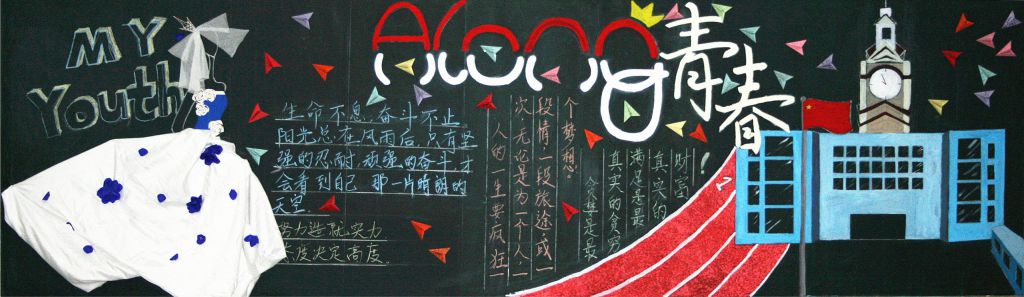 MY
Youth
生命不息 奋斗不止
阳光总在风雨后,只有坚
强的忍耐 顽强的奋斗 才
会看到自己 那一片晴朗的
天空.
努力造就实力
态度决定高度
Along
青春
人的一生要疯狂一
次,无论是为一个人,一
段情一段旅途或一
个梦想。
贪婪是最
真实的贫穷
满足是最
真实的
财富!